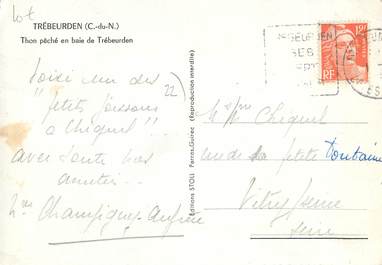 Lot
TRÉBEURDEN (C.-du-N.)
Thon pêché en baie de Trébeurden
Voici un des
"petits poissons
à Chiquet"...
avec toute nos
amitiés
Mme Champigny
22
Éditions STOLL Perros-Guirec (Reproduction interdite)
12F
RF
M Mme Chiquet
rue de la petite Fontaine
Vitry/seine
Seine